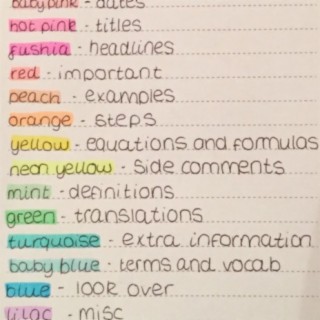 baby pink - dates
hot pink - titles
fushia - headlines
red - important
peach - examples
orange - steps
yellow - equations and formulas
neon yellow - side comments
mint - definitions
green - translations
turquoise - extra information
baby blue - terms and vocab
blue - look over
lilac - misc